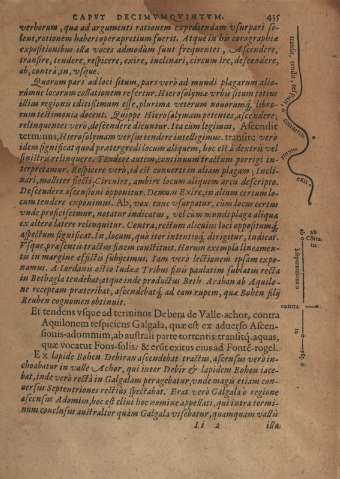 CAPUT DECIMUMQUINTUM. 435
verborum, qua ad argumenti rationem expediendam usurpari so-
lent, rationem habere operæpretium fuerit. Atque in his corographiæ
expositionibus illa voces admodùm sunt frequentes, Ascendere,
transire, tendere, respicere, exire, inclinari, circum ire, descendere,
ab, contra, in, vsque.
Quorum pars ad loci situm, pars verò ad mundi plagarum alio-
rúmue locorum collationem refertur. Hierosolymæ vrbis situm totius
illius regionis editissimum esse, plurima veterum nouorumq́; libro-
rum testimonia docent. Quippe Hierosolymam petentes, ascendere;
relinquentes verò, descendere dicuntur. Ita cum legimus, Ascendit
terminus, Hierosolymam versus tendere intelligimus. transire verò
idem significat quod prætergredi locum aliquem, hoc est à dextra vel
sinistra relinquere. Tendere autem, continuum tractum porrigi inter-
pretamur. Respicere verò, id est conuerti in aliam plagam, Incli-
nari, molliter flecti, Circuire, ambire locum aliquem arcu descripto.
Descendere ascensioni opponitur. Demum Exire, in alium certum lo-
cum tendere exponimus. Ab, vox tunc vsurpatur, cùm locus certus
vnde proficiscimur, notatur indicatus, vel cum mundi plaga aliqua
ex altero latere relinquitur. Contra, rectum alicuius loci oppositumq́;
aspectum significat. In, locum, quo iter intentísq; dirigitur, indicat.
Vsque, præsentis tractus finem constituit. Horum exempla lineamen-
tis in margine effictis subijcimus. Iam vero lectionem ipsam expo-
namus. A Iordanis ostio Iudææ Tribus finis paulatim sublatus recta
in Bethagla tendebat, atque inde productus Beth Araban ab Aquilo-
ne receptam præteribat, ascendebatq́; ad eam rupem, qua Bohen filij
Reuben cognomen obtinuit.
Et tendens vsque ad terminos Debera de Valle-achor, contra
Aquilonem respiciens Galgala, quæ est ex aduerso Ascen-
sionis-adommim, ab australi parte torrentis: transitq́; aquas,
quæ vocatur Fons-solis: & erunt exitus eius ad Fonté-rogel.
Ex lapide Bohen Debiran ascendebat tractus, ascensus verò in-
choabatur in valle Achor, qui inter Debir & lapidem Bohem iace-
bat, inde verò rectà in Galgalam peragebatur, vnde magis etiam con-
uersus Septentriones rectius spectabat. Erat verò Galgala è regione
ascensus Adomim, hoc est cliui hoc nomine appellati, qui intra termi-
num conclusus australior quàm Galgala visebatur, quamquam vallis
Ii 2 illa